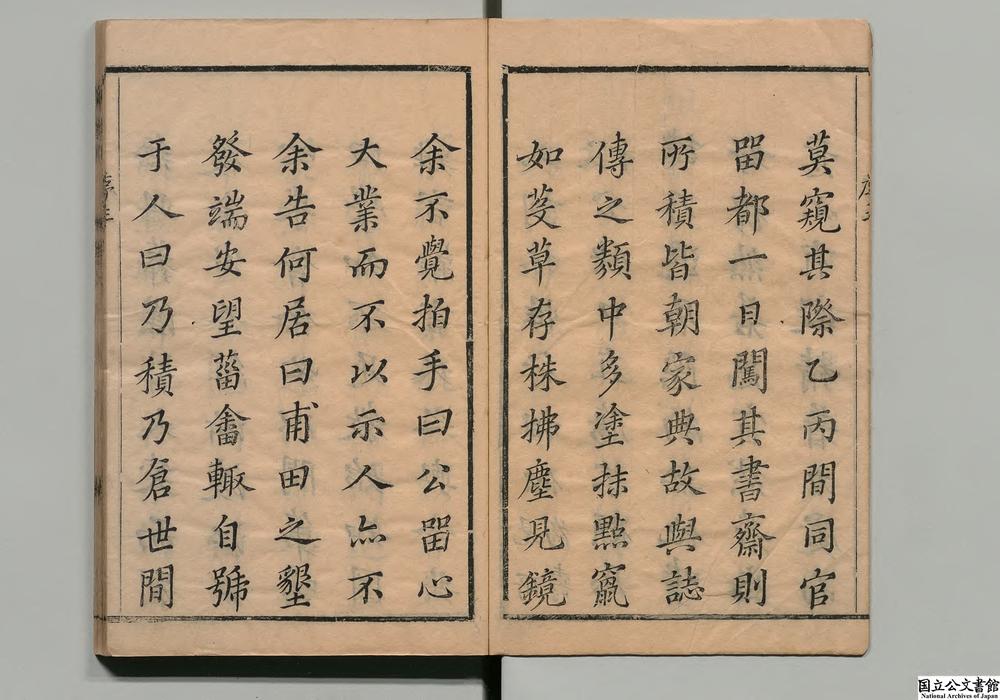 莫窺其際乙丙間同官
畱都一日闖其書齋則
所積皆朝家典故與誌
傳之類中多塗抹點竄
如芟草存株拂塵見鏡
余不覺拍手曰公畱心
大業而不以示人亦不
余告何居曰甫田之墾
發端安望菑畬輙自號
于人曰乃積乃倉世間
序三
国立公文書館
National Archives of Japan